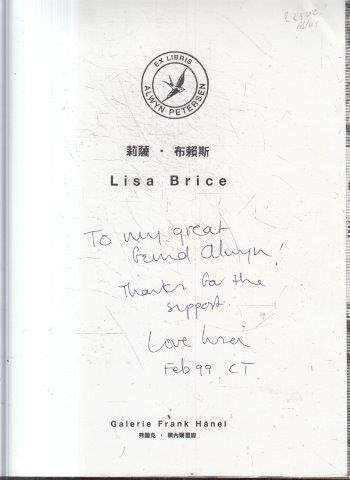 EX LIBRIS
ALWYN PETERSEN
莉薩 · 布賴斯
Lisa Brice
To my great
friend Alwyn!
Thanks for the
support
Love Lisa
Feb 99 CT
Galerie Frank Hänel